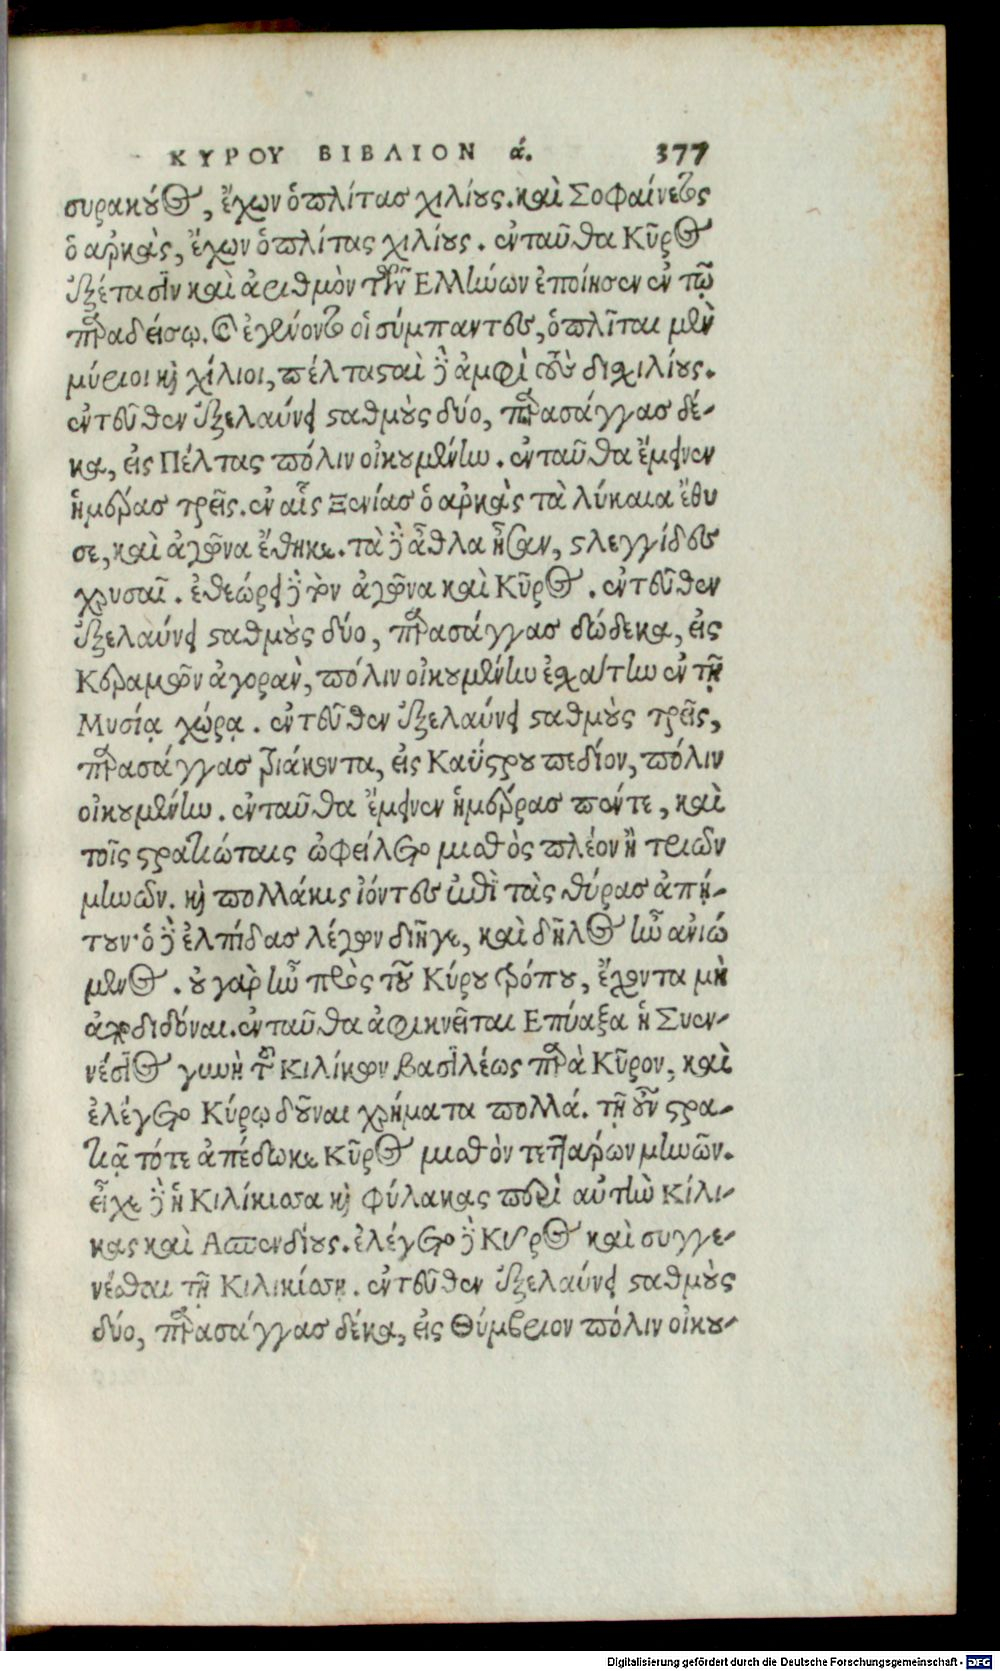 ΚΥΡΟΥ ΒΙΒΛΙΟΝ ά. 377
συρακούσιος, ἔχων ὁπλίτας χιλίους. καὶ Σοφαίνετος
ὁ αρκὰς, ἔχων ὁπλίτας χιλίους. ἐνταῦθα Κῦρος
ἐξέτασιν καὶ ἀριθμὸν τῶν Ελλήνων ἐποίησεν ἐν τῷ
παραδείσῳ. καὶ ἐγένοντο οἱ σύμπαντες, ὁπλῖται μὲν
μύριοι καὶ χίλιοι, πέλτασαὶ δὲ ἀμφὶ τοὺς διχιλίους.
ἐντεῦθεν ἐξελαύνει σαθμοὺς δύο, παρασάγγας δέ-
κα, εἰς Πέλτας πόλιν οἰκουμένην. ἐνταῦθα ἔμεινεν
ἡμέρας τρεῖς. ἐν αἷς Ξενίας ὁ αρκὰς τὰ λύκαια ἔθυ
σε, καὶ ἀγῶνα ἔθηκε. τὰ δὲ ἆθλα ἦσαν, στλεγγίδες
χρυσαῖ. ἐθεώρει δὲ τὸν ἀγῶνα καὶ Κῦρος. ἐντεῦθεν
ἐξελαύνει σταθμοὺς δύο, παρασάγγας δώδεκα, εἰς
Κεραμῶν ἀγορὰν, πόλιν οἰκουμένην ἐχάτην ἐν τῇ
Μυσίᾳ χώρᾳ. ἐντεῦθεν ἐξελαύνει σταθμοὺς τρεῖς,
παρασάγγας τριάκοντα, εἰς Καΰστρου πεδίον, πόλιν
οἰκουμένην. ἐνταῦθα ἔμεινεν ἡμέρας πέντε, καὶ
τοῖς στρατιώταις ὠφείλετο μισθὸς πλέον ἢ τριῶν
μηνῶν. καὶ πολλάκις ἰόντες ἐπὶ τὰς θύρας ἀπῄ-
τουν· ὁ δὲ ἐλπίδας λέγων διῆγε, καὶ δῆλος ἦν ανιώ
μενος. οὐ γὰρ ἦν πρὸς τοῦ Κύρου τρόπου, ἔχοντα μὴ
ἀποδιδόναι. ἐνταῦθα ἀφικνεῖται Επύαξα ἡ Συεν-
νέσιος γυνὴ τοῦ κιλίκων βασιλέως παρὰ Κῦρον, καὶ
ἐλέγετο Κύρῳ δοῦναι χρήματα πολλά. τῇ οὖν στρα-
τιᾷ τότε ἀπέδωκε Κῦρος μισθὸν τεττάρων μηνῶν.
εἶχε δὲ ἡ Κιλίκισσα καὶ φύλακας περὶ αὑτὴν κίλι-
κας καὶ Ασπενδίους. ἐλέγετο δὲ Κῦρος καὶ συγγε-
νέσθαι τῇ Κιλικίσσῃ. ἐντεῦθεν ἐξελαύνει σταθμοὺς
δύο, παρασάγγας δέκα, εἰς Θύμβριον πόλιν οἰκου-
Digitalisierung gefördert durch die Deutsche Forschungsgemeinschaft - DFG